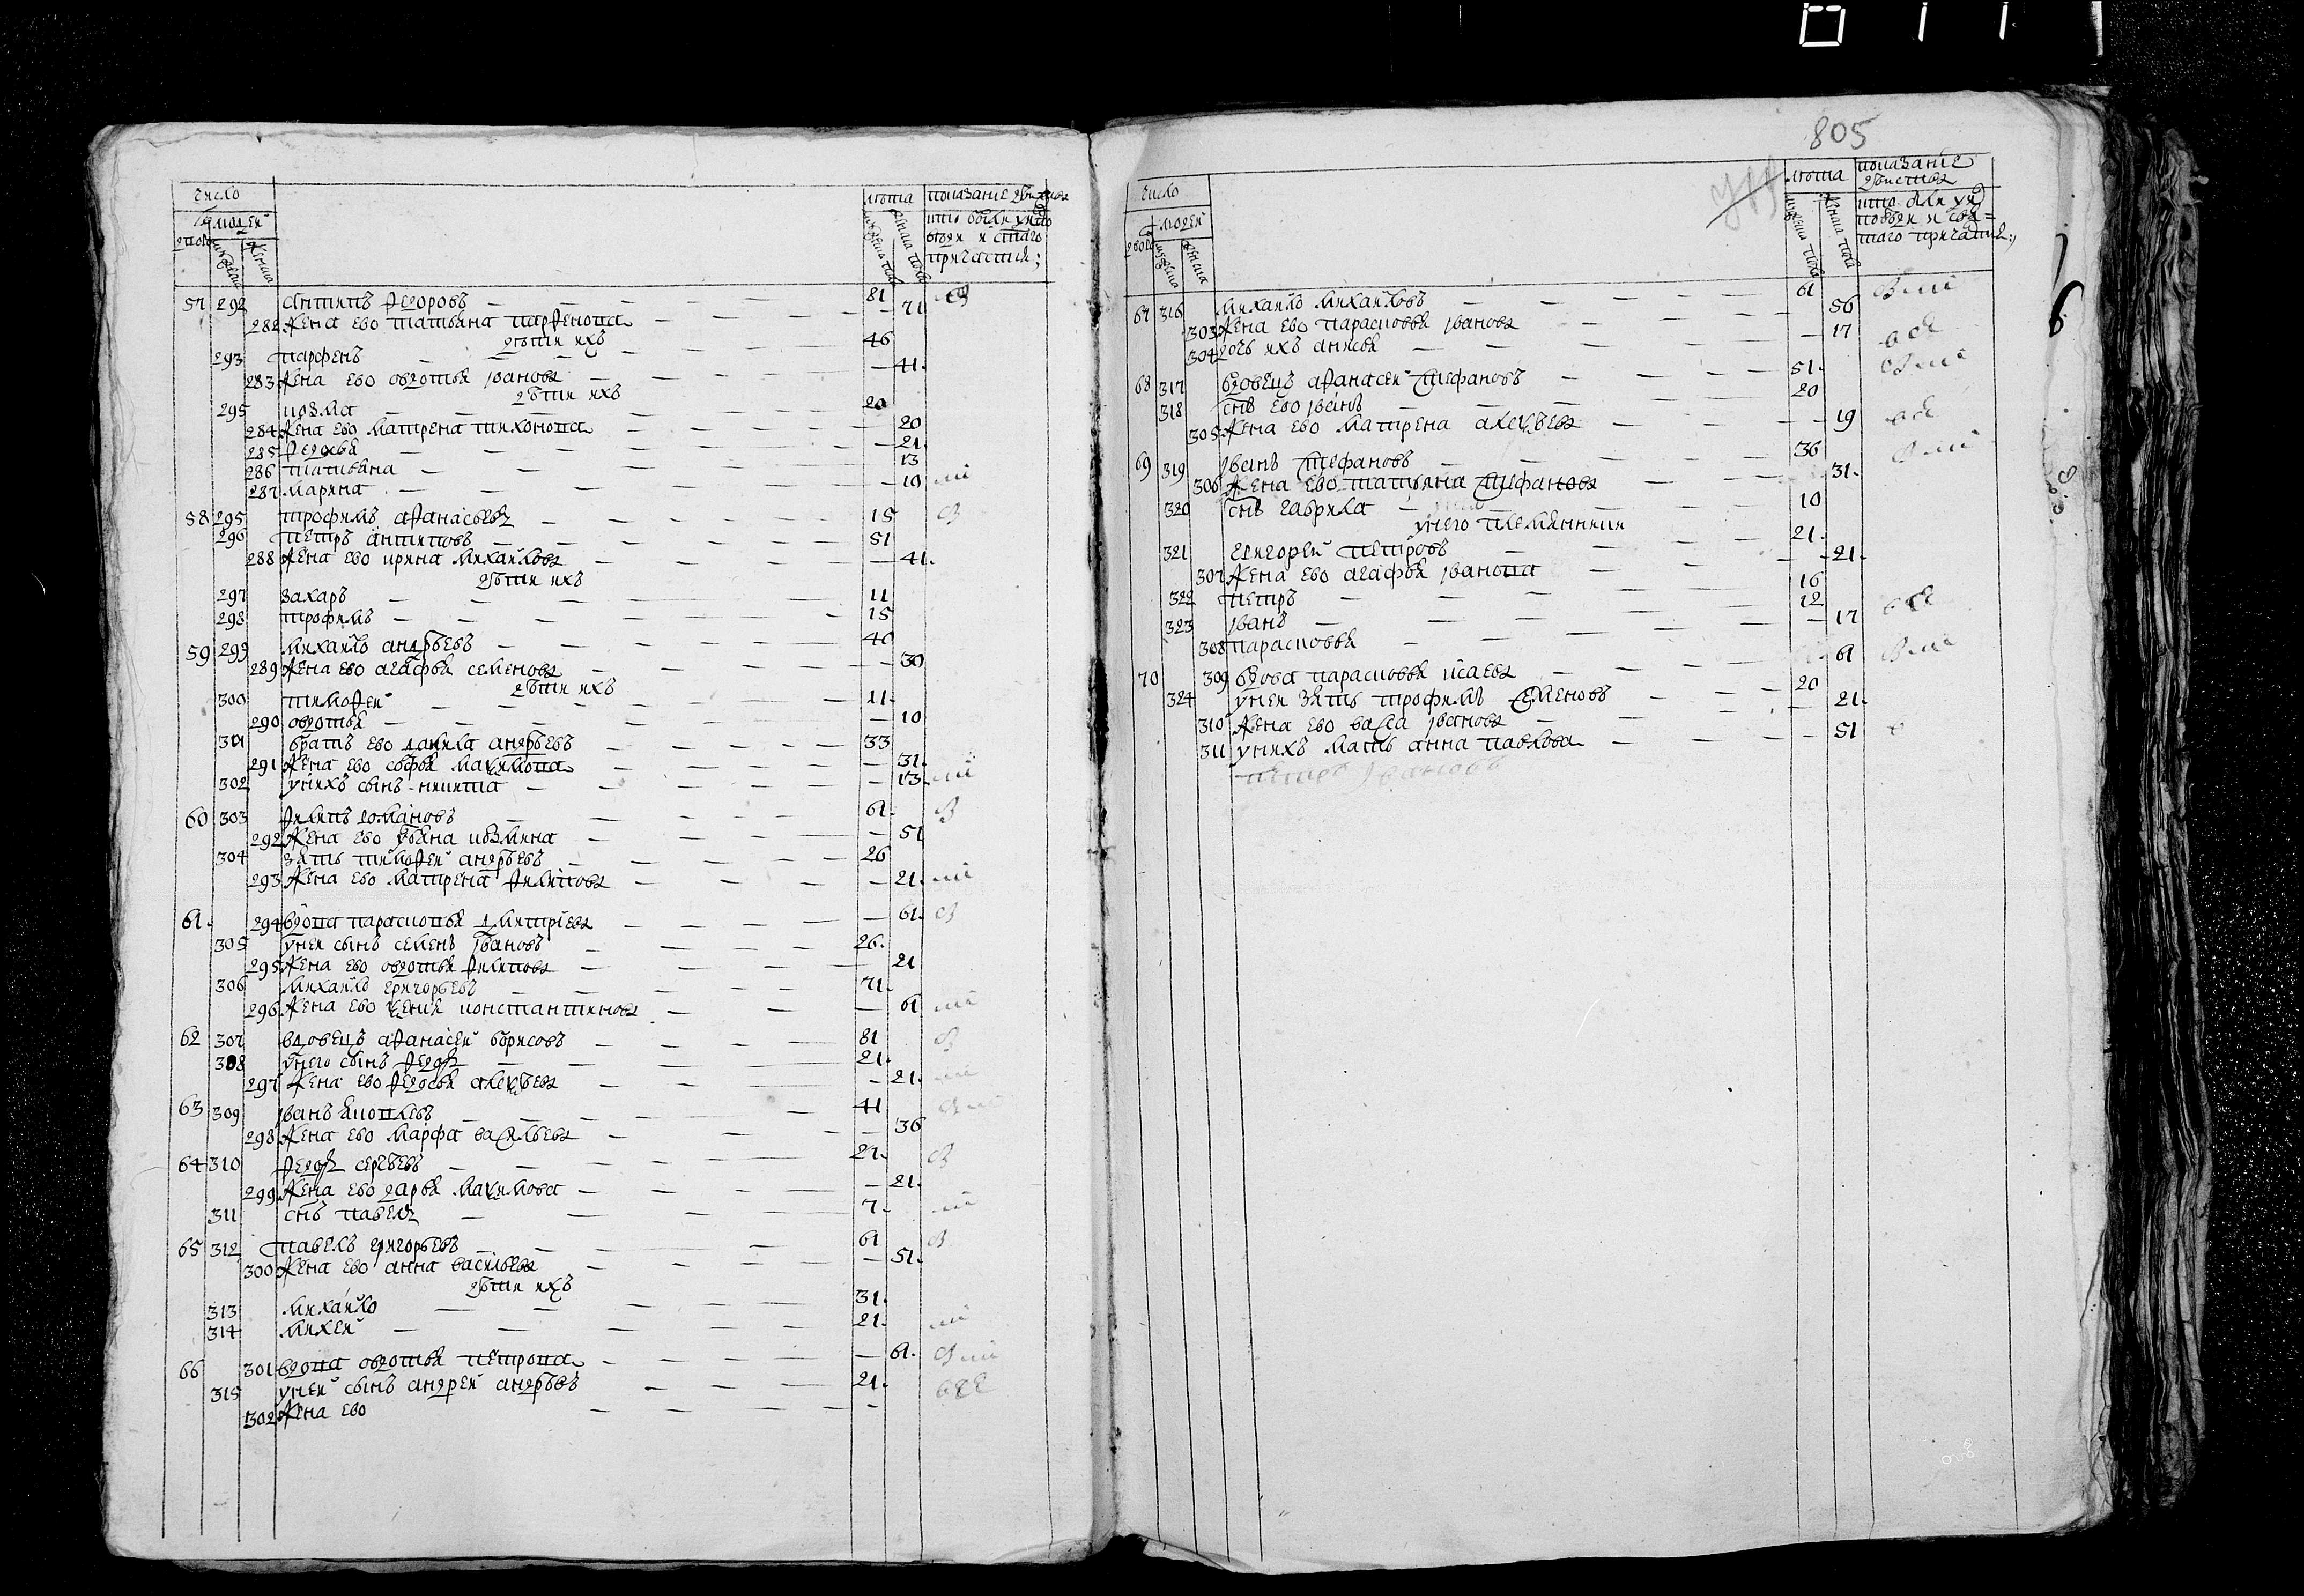 число
людей
дворовъ
мужеска
женска
лѣта
мужеска пола
женска пола
показание дѣйства
кто были у исповеди и святаго причастия:
57 292 Антипъ Федоровъ 81
282 Жена ево татьяна парфенова 71
дѣти ихъ
293 парфенъ 46
283 Жена ево овдотья иванова 41
дѣти ихъ
295 козма 20
284 Жена ево матрена тихонова 20
285 федосья 21
286 татьяна 13
287 марина 10
58 295 трофимъ афанасьевъ 15
296 петръ антиповъ 51
288 Жена ево ирина михайлова 41
дѣти ихъ
297 захаръ 11
298 трофимъ 15
59 299 михайло андрѣевъ 40
289 Жена ево агафья семенова 30
дѣти ихъ
300 тимофей 11
290 овдотья 10
301 братъ ево данила андрѣевъ 33
291 Жена ево софья максимова 31
302 у нихъ сынъ никита 13
60 303 филипъ романовъ 61
292 Жена ево ульяна козмина 51
304 зять тимофей андрѣевъ 26
293 Жена ево матрена филипова 21
61 294 вдова парасковья дмитриева 61
305 у неи сынъ семенъ ивановъ 26
295 Жена ево овдотья филипова 21
306 михайло григорьевъ 71
296 Жена ево ксения константинова 61
62 307 вдовецъ афанасей борисовъ 81
308 у него сынъ федоръ 21
297 Жена ево федосья алексѣева 21
63 309 иванъ яковлевъ 41
298 Жена ево марфа васильева 36
64 310 федоръ сергѣевъ 27
299 Жена ево дарья максимова 21
311 снъ павелъ 7
65 312 павелъ григорьевъ 61
300 Жена ево анна васильева 51
дѣти ихъ
313 михайло 31
314 михей 21
66 301 вдова овдотья петрова 61
315 у неи сынъ андрей андрѣевъ 21
302 Жена ево
805
число
людей
дворовъ
мужеска
женска
лѣта
мужеска пола
женска пола
показание
дѣйства
кто были у ис
поведи и свя=
таго причастия:
67 316 михайло михайловъ 61
303 Жена ево парасковья иванова 56
304 дочь ихъ анисья 17
68 317 вдовецъ афанасей стефановъ 51
318 снъ ево иванъ 20
305 Жена ево матрена алексѣева 19
69 319 иванъ стефановъ 36
306 Жена ево татьяна стефанова 31
320 снъ гаврила 10
у него племянники
321 григорей петровъ 21
307 Жена ево агафья иванова 21
322 петръ 16
323 иванъ 12
308 парасковья 17
70 309 вдова парасковья исаева 61
324 у неи зять трофимъ семеновъ 20
310 Жена ево васса иванова 21
311 у нихъ мать анна павлова 51
петръ ивановъ
6